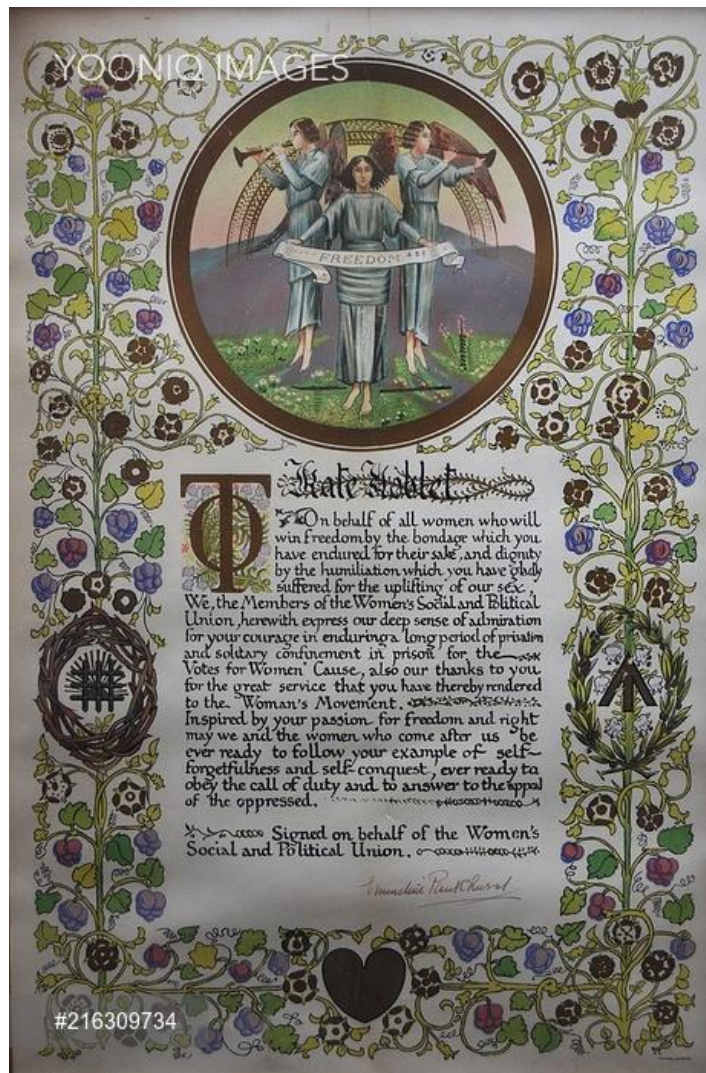 YOONIQ IMAGES
FREEDOM
TO Kate
On behalf of all women who will
win freedom by the bondage which you
have endured for their sake, and dignity
by the humiliation which you have gladly
suffered for the uplifting of our sex,
We, the Members of the Women's Social and Political
Union, herewith express our deep sense of admiration
for your courage in enduring a long period of privation
and solitary confinement in prison for the
Votes for Women' Cause, also our thanks to you
for the great service that you have thereby rendered
to the Woman's Movement.
Inspired by your passion for freedom and right
may we and the women who come after us be
ever ready to follow your example of self-
forgetfulness and self-conquest, ever ready to
obey the call of duty and to answer to the appeal
of the oppressed.
Signed on behalf of the Women's
Social and Political Union.
Emmeline Pankhurst
#216309734